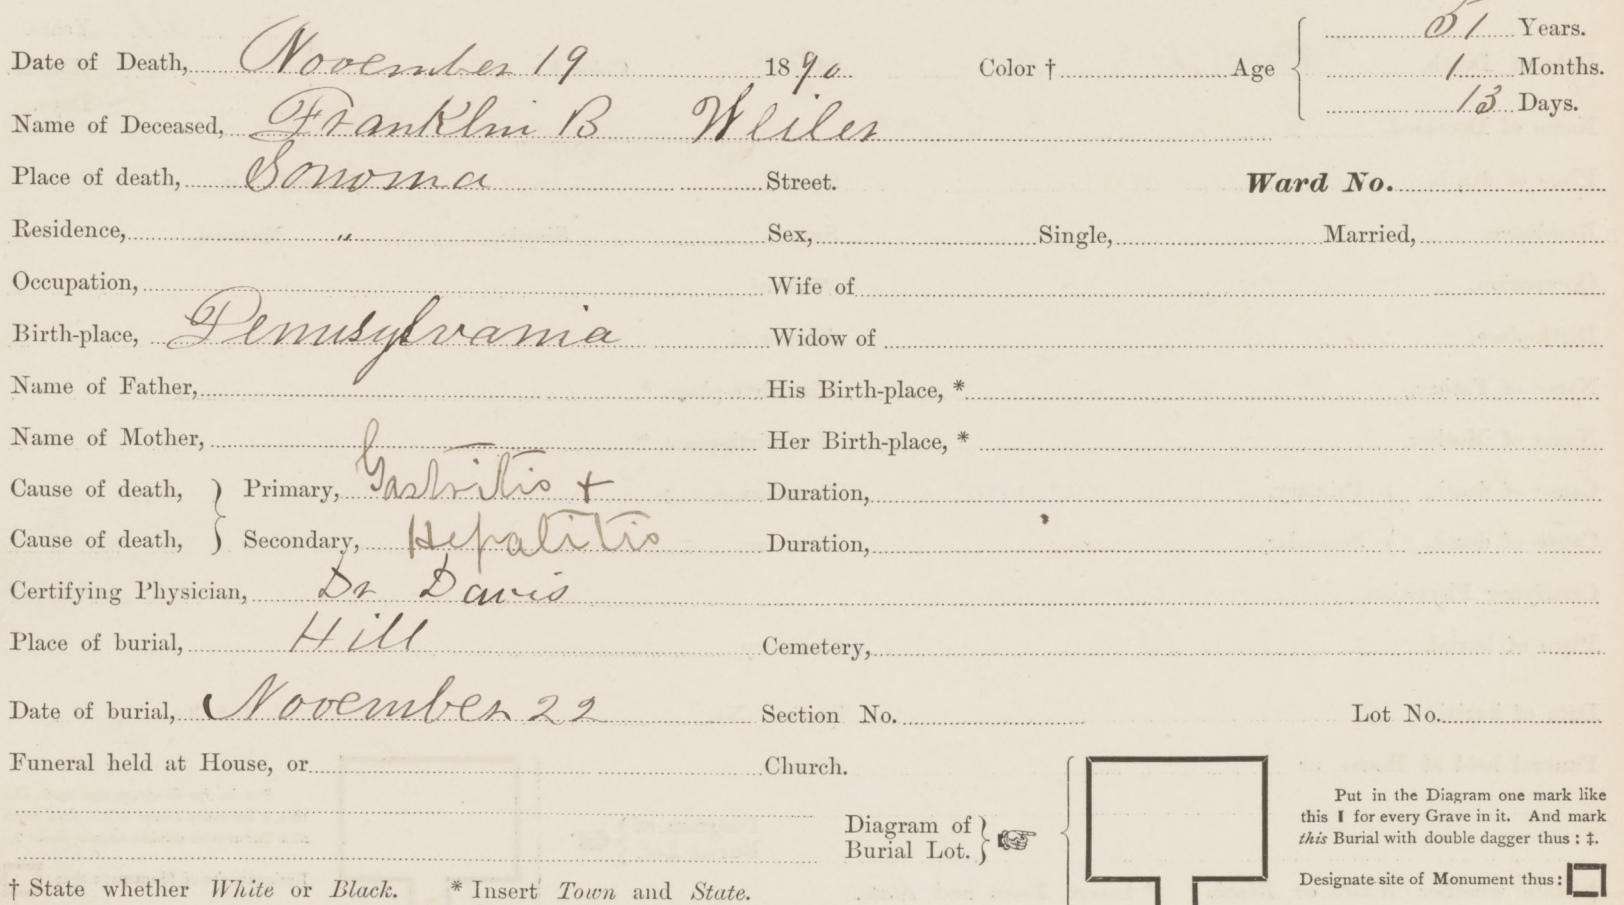 Date of Death, November 19 1890 Color † Age 51 Years.
1 Months.
13 Days.
Name of Deceased, Franklin B Weiler
Place of death, Sonoma Street. Ward No.
Residence, " Sex, Single, Married,
Occupation, Wife of
Birth-place, Pennsylvania Widow of
Name of Father, His Birth-place, *
Name of Mother, Her Birth-place, *
Cause of death, } Primary, Gastritis + Duration,
Cause of death, } Secondary, Hepatitis Duration,
Certifying Physician, Dr Davis
Place of burial, Hill Cemetery,
Date of burial, November 22 Section No. Lot No.
Funeral held at House, or Church.
Diagram of
Burial Lot. }
Put in the Diagram one mark like
this I for every Grave in it. And mark
this Burial with double dagger thus : ‡.
Designate site of Monument thus :
† State whether White or Black. * Insert Town and State.